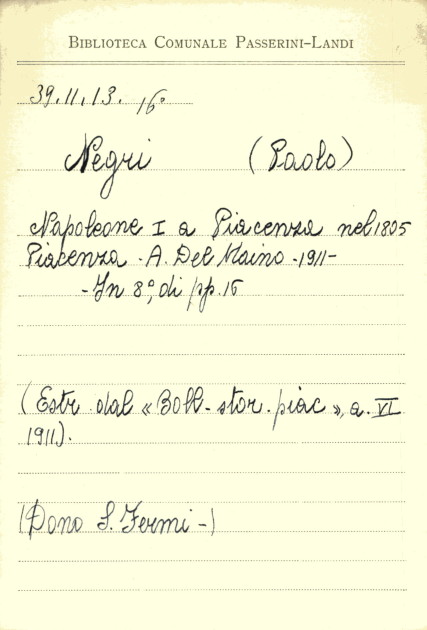 BIBLIOTECA COMUNALE PASSERINI-LANDI
39.11.13. 16°
Negri (Paolo)
Napoleone I a Piacenza nel 1805
Piacenza - A. Del Maino - 1911 -
- In 8°, di pp. 16
(Estr. dal « Boll. stor. piac », a. VI
1911).
(Dono S. Fermi -)